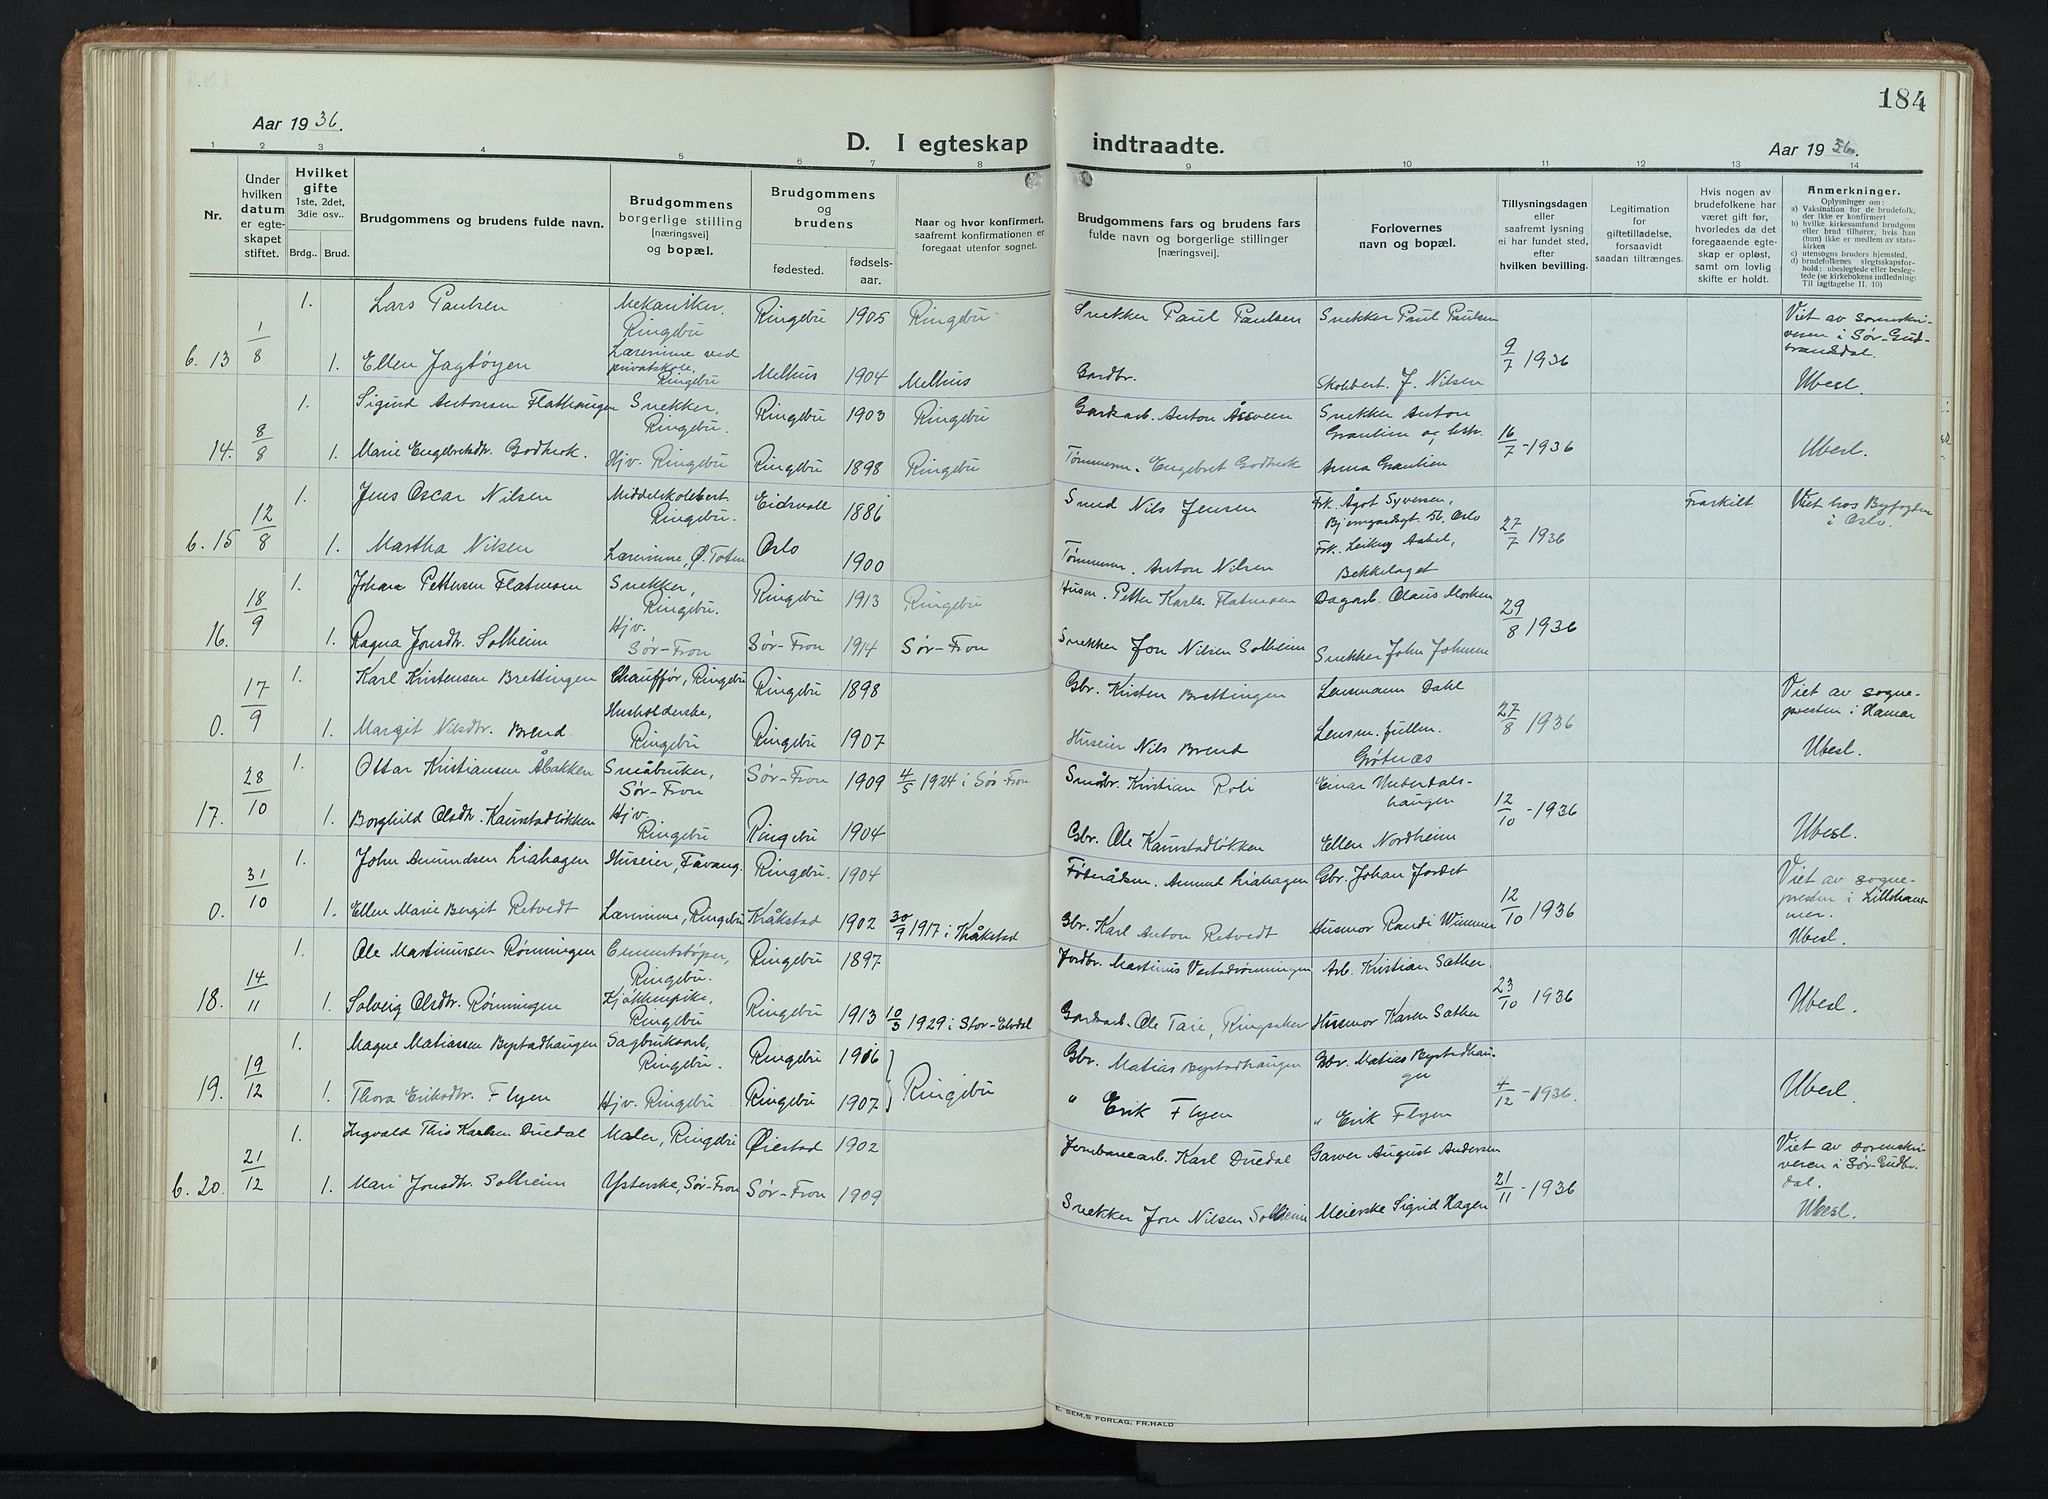 184
Aar 1936.
D. I egteskap indtraadte.
Aar 1936.
1 2 3 4 5 6 7 8 9 10 11 12 13 14
Nr.
Under hvilken datum er egteskapet stiftet.
Hvilket gifte 1ste, 2det, 3die osv..
Brdg.. Brud.
Brudgommens og brudens fulde navn.
Brudgommens borgerlige stilling [næringsvei] og bopæl.
Brudgommens og brudens
fødested. fødselsaar.
Naar og hvor konfirmert, saafremt konfirmationen er foregaat utenfor sognet.
Brudgommens fars og brudens fars fulde navn og borgerlige stillinger [næringsvei].
Forlovernes navn og bopæl.
Tillysningsdagen eller saafremt lysning ei har fundet sted, efter hvilken bevilling.
Legitimation for giftetilladelse, forsaavidt saadan tiltrænges.
Hvis nogen av brudefolkene har været gift før, hvorledes da det foregaaende egteskap er opløst, samt om lovlig skifte er holdt.
Anmerkninger.
Oplysninger om:
a) Vaksination for de brudefolk, der ikke er konfirmert
b) hvilke kirkesamfund brudgom eller brud tilhører, hvis han (hun) ikke er medlem av statskirken
c) utensogns bruders hjemsted.
d) brudefolkenes slegtsskapsforhold: ubeslegtede eller beslegtede (se kirkebokens indledning: Til iagttagelse II. 10)
b. 13 1/8 1. Lars Paulsen Mekaniker. Ringebu Ringebu 1905 Ringebu Snekker Paul Paulsen Snekker Paul Paulsen 9/7 1936 Viet av sorenskriveren i Sør-Gudbransdal.
1. Ellen Jagtøyen Lærerinne ved privatskole, Ringebu Melhus 1904 Melhus Gardbr. Skolebest. J. Nilsen Ubesl.
14. 8/8 1. Sigurd Antonsen Flathaugen Snekker, Ringebu. Ringebu 1903 Ringebu Gardsarb. Anton Åssveen Snekker Anton Graulien og hstr. 16/7 - 1936 Ubesl.
1. Marie Engebretsdtr. Godhok. Hjv. Ringebu Ringebu 1898 Ringebu Tømmerm. Engebret Godhok Anna Graulien
b. 15 12/8 1. Jens Oscar Nilsen Middelskolebest. Ringebu. Eidsvoll 1886 Smed Nils Jensen Frk. Ågot Syversen, Bjerregaardsgt. 56, Oslo 27/7 1936 Fraskilt Viet hos Byfogden i Oslo.
1. Martha Nilsen Lærerinne, Ø. Toten Oslo 1900 Tømmerm. Anton Nilsen Frk. Leikny Aabel, Bekkelaget
16. 18/9 1. Johan Pettersen Flatmoen Snekker, Ringebu. Ringebu 1913 Ringebu Husm. Petter Karls. Flatmoen Dagarb. Claus Morken 29/8 1936
1. Ragna Jonsdtr. Solheim Hjv. Sør-Fron Sør-Fron 1914 Sør-Fron Snekker Jon Nilsen Solheim Snekker John Johnsen
0. 17/9 1. Karl Kristensen Brettingen Chauffør, Ringebu Ringebu 1898 Gbr. Kristen Brettingen Lensmann Dahl 27/8 1936 Viet av sognepresten i Hamar
1. Margit Nilsdtr. Brend Husholderske, Ringebu Ringebu 1907 Huseier Nils Brend Lensm.fullm. Grøtnæs Ubesl.
17. 28/10 1. Ottar Kristiansen Åbakken Småbruker, Sør-Fron Sør-Fron 1909 4/5 1924 i Sør-Fron Småbr. Kristian Roli Einar Unberdalshaugen 12/10 - 1936
1. Borghild Olsdtr. Kaunstadløkken Hjv. Ringebu Ringebu 1904 Gbr. Ole Kaunstadløkken Ellen Nordheim Ubesl.
0. 31/10 1. John Amundsen Liahagen Huseier, Fåvang. Ringebu. 1904 Amund Liahagen Gbr. Johan Jordet 12/10 1936 Viet av sognepresten i Lillehammer.
1. Ellen Marie Bergit Retvedt Lærerinne, Ringebu Kråkstad 1902 30/9 1917 i Kråkstad Gbr. Karl Anton Retvedt Husmor Randi Wimmer Ubesl.
18. 14/11 1. Ole Martinussen Rønningen Cementstøper, Ringebu. Ringebu 1897 Jordbr. Martinus Vestadrønningen Arb. Kristian Sæther. 23/10 1936 Ubesl.
1. Solveig Olsdtr. Rønningen Kjøkkenpike, Ringebu Ringebu 1913 10/3 1929 i Stor-Elvdal Gardsarb. Ole Taie, Ringsaker Husmor Karen Sæther
19. 19/12 1. Magne Matiassen Bystadhaugen Sagbruksarb. Ringebu. Ringebu 1906 Ringebu Gbr. Matias Bystadhaugen Gbr. Matias Bystadhaugen 4/12 - 1936. Ubesl.
1. Thora Eriksdtr. Flyen Hjv. Ringebu Ringebu 1907 " Erik Flyen " Erik Flyen
b. 20. 21/12 1. Ingvald This Karlsen Duedal Maler, Ringebu Øiestad 1902 Jernbanearb. Karl Duedal Garver August Andersen 21/11 - 1936 Viet av sorenskriveren i Sør-Gudbr.dal.
1. Mari Jonsdtr. Solheim Ysterske, Sør-Fron Sør-Fron 1909 Snekker Jon Nilsen Solheim Meierske Sigrid Hagen Ubesl.
E. SEM,S FORLAG, FR.HALD